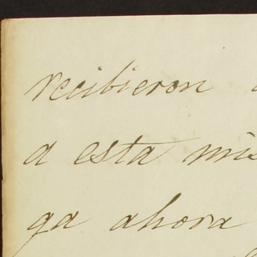 recibieron
a esta mis
ga ahora